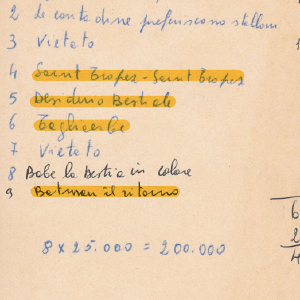 2 le contadine preferiscono stalloni
3 Vietato
4 Saint Tropez - Saint Tropez
5 Desiderio Bestiale
6
7 Vietato
8 Babe la bestia in calore
9 Batman il ritorno
8 x 25.000 = 200.000
6
2
4